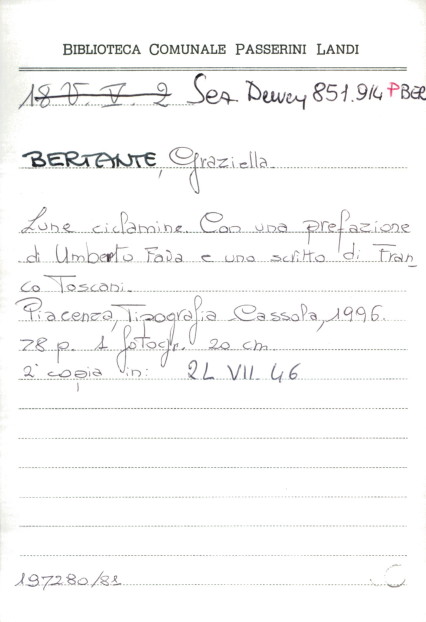 BIBLIOTECA COMUNALE PASSERINI LANDI
18 V. V. 2 Sez Dewey 851.914 PBER
BERTANTE, Graziella.
Lune ciclamine. Con una prefazione
di Umberto Fava e uno scritto di Fran_
co Toscani.
Piacenza, Tipografia Cassola, 1996.
78 p. 1 fotogr. 20 cm
2ª copia in: 2L VII. 46
197280/81